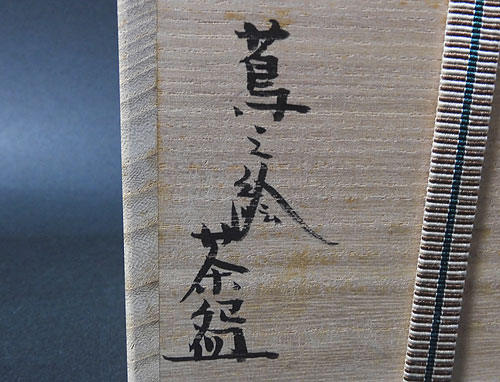 蔦之絵
茶盌